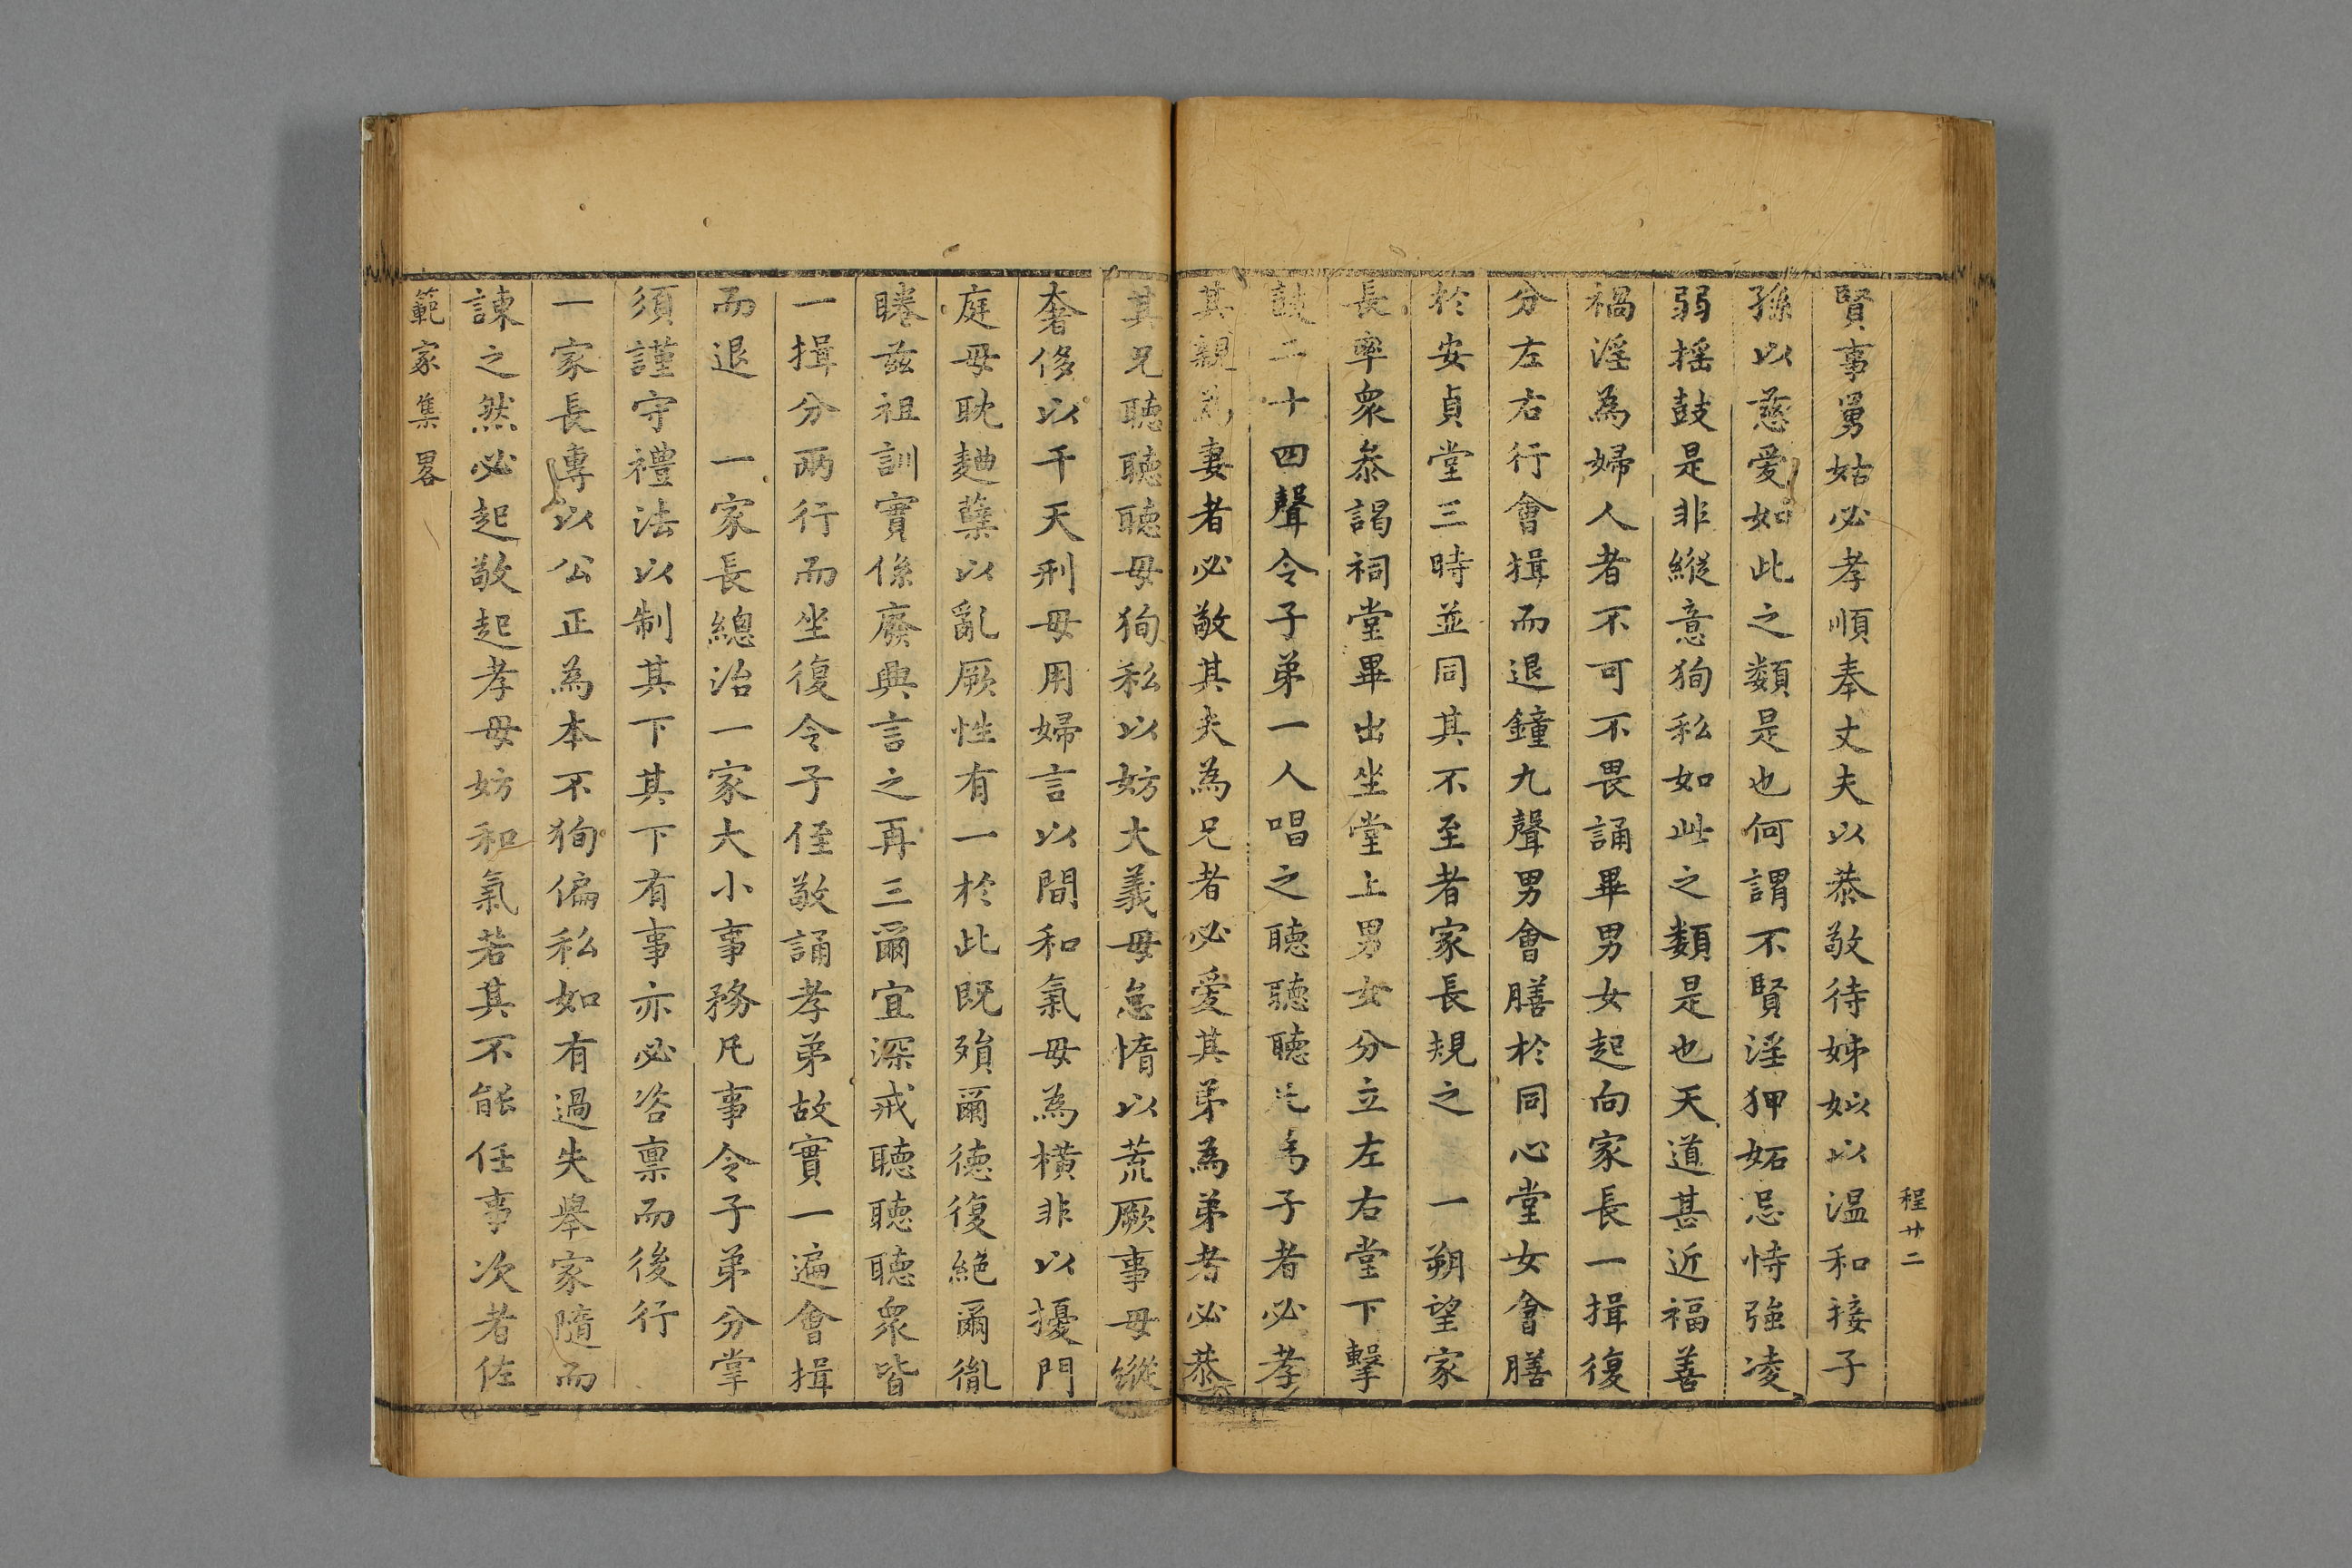 賢事舅姑必孝順奉丈夫以恭敬待娣姒以温和接子
孫以慈愛如此之類是也何謂不賢淫狎妬忌恃強凌
弱揺鼓是非縱意狥私如此之類是也天道甚近福善
禍淫為婦人者不可不畏誦畢男女起向家長一揖復
分左右行會揖而退鐘九聲男會膳於同心堂女會膳
於安貞堂三時並同其不至者家長規之　一朔望家
長率衆叅謁祠堂畢出坐堂上男女分立左右堂下擊
鼓二十四聲令子弟一人唱之聽聽聽凡為子者必孝
其親為妻者必敬其夫為兄者必愛其弟為弟者必恭
其兄聽聽聽毋狥私以妨大義毋怠惰以荒厥事毋縱
奢侈以干天刑毋用婦言以間和氣毋為橫非以擾門
庭毋耽麯糵以亂厥性有一於此既殞爾德復絕爾胤
睠兹祖訓實係廢興言之再三爾宜深戒聽聽聽衆皆
一揖分兩行而坐復令子侄敬誦孝弟故實一遍會揖
而退　一家長總治一家大小事務凡事令子弟分掌
須謹守禮法以制其下其下有事亦必咨禀而後行
一家長專以公正為本不狥偏私如有過失舉家隨而
諫之然必起敬起孝毋妨和氣若其不能任事次者佐
範家集畧
程廿二